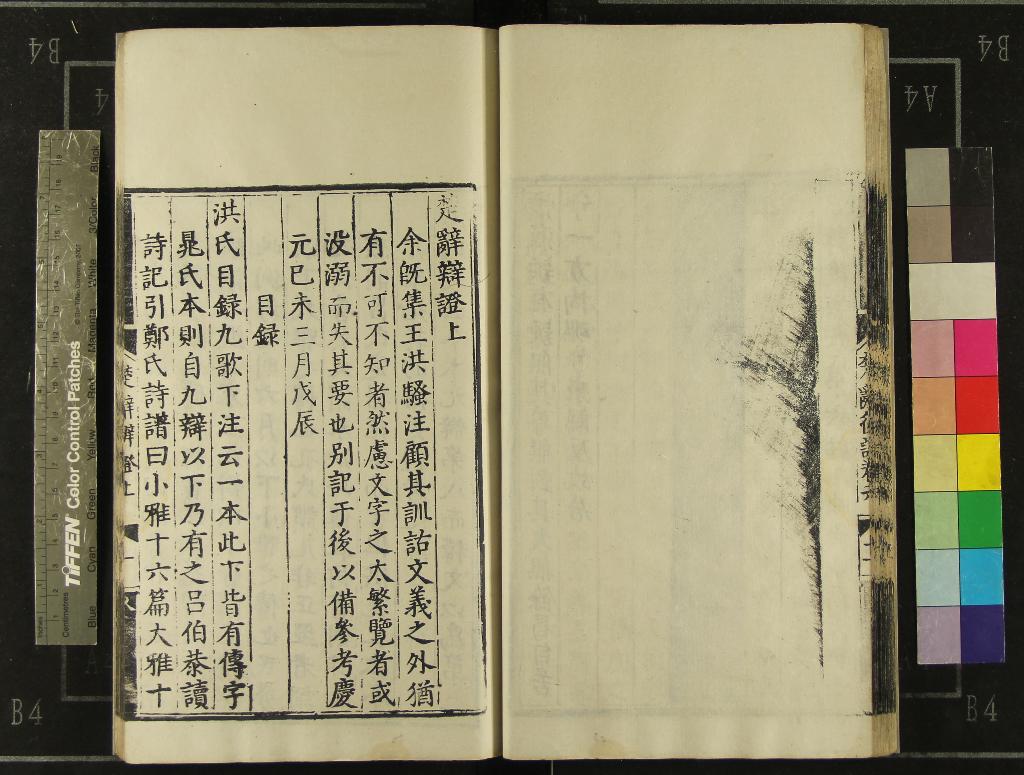 楚辭辯證上
余旣集王洪騷注顧其訓詁文義之外猶
有不可不知者然慮文字之太繁覽者或
没溺而失其要也別記于後以備參考慶
元已未三月戊辰
目録
洪氏目録九歌下注云一本此下皆有傳字
晁氏本則自九辯以下乃有之吕伯恭讀
詩記引鄭氏詩譜曰小雅十六篇大雅十
楚辭辯證上
B4
B4
A4
B4
B4
TIFFEN Color Control Patches
Centimetres
Inches
Blue
Cyan
Green
Yellow
Red
Magenta
White
3/Color
Black